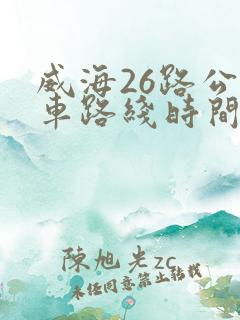 威海26路公
車路綫時間
陳旭光zc
未经同意禁止转载